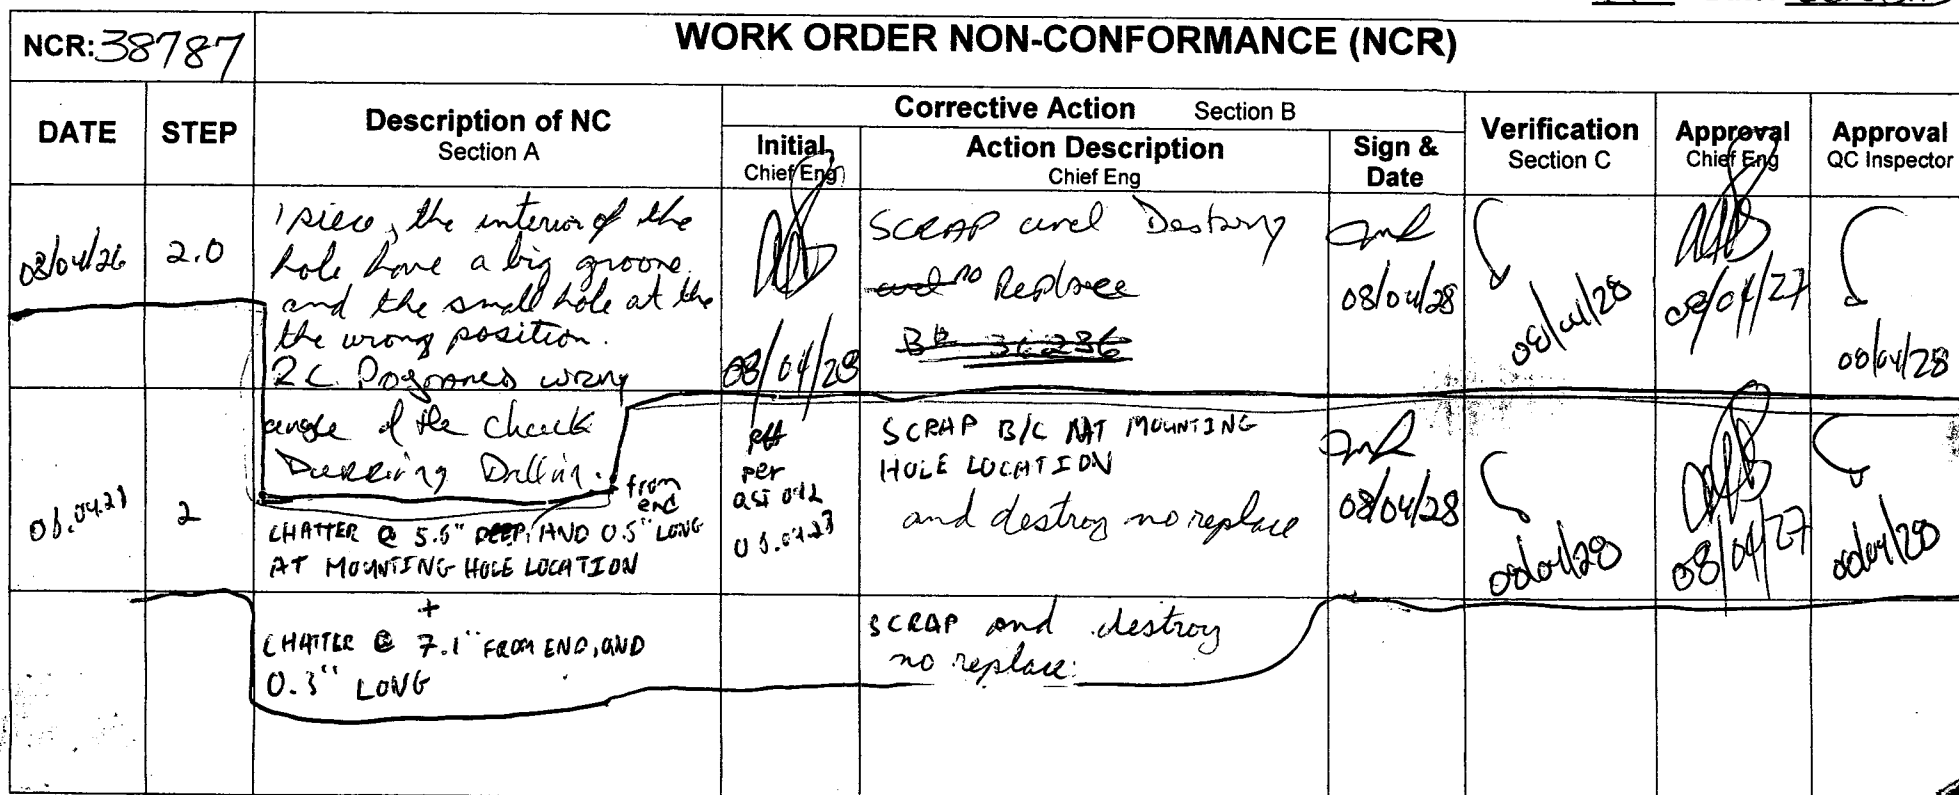 NCR: 38787
WORK ORDER NON-CONFORMANCE (NCR)
DATE
STEP
Description of NC
Section A
Corrective Action Section B
Initial
Chief Eng
Action Description
Chief Eng
Sign &
Date
Verification
Section C
Approval
Chief Eng
Approval
QC Inspector
08/04/26
2.0
1 piece, the interior of the
hole have a big groove
and the small hole at the
the wrong position.
wrong
angle of the chuck
Drilling.
08/04/28
SCRAP and Destroy
and no Replace
08/04/28
08/04/28
08/04/27
08/04/28
2
from
end
CHATTER @ 5.5" DEEP, AND 0.5" LONG
AT MOUNTING HOLE LOCATION
per
QSI 042
SCRAP B/C AT MOUNTING
HOLE LOCATION
and destroy no replace
08/04/28
08/04/28
08/04/27
08/04/28
+
CHATTER @ 7.1" FROM END, AND
0.3" LONG
SCRAP and destroy
no replace.